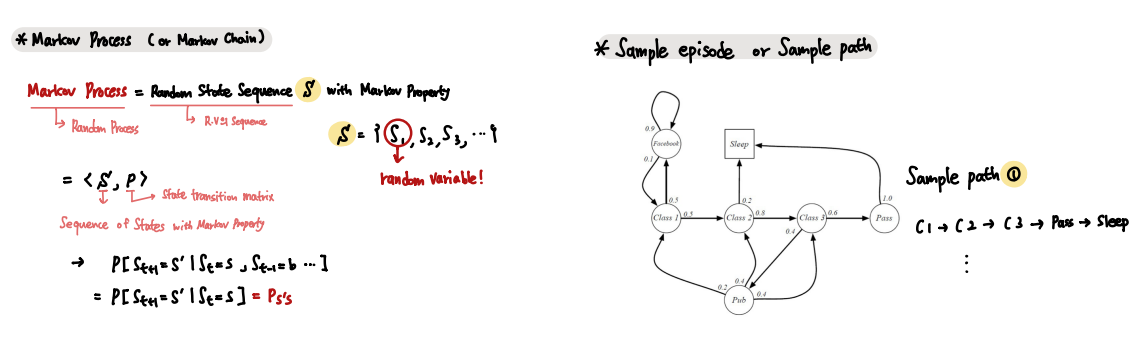 * Markov Process (or Markov Chain)
Markov Process = Random State Sequence S with Markov Property
Random Process
R.V의 Sequence
S = { S1, S2, S3, ... }
random variable!
= < S, P >
State transition matrix
Sequence of States with Markov Property
→ P[St+1=S' | St=s, St-1=b ...]
= P[St+1=S' | St=s] = Ps's
* Sample episode or Sample path
0.9
Facebook
Sleep
0.1
0.5
0.2
1.0
Class 1
0.5
Class 2
0.8
Class 3
0.6
Pass
0.4
0.2
0.4
Pub
0.4
Sample path ①
C1 → C2 → C3 → Pass → Sleep
⋮